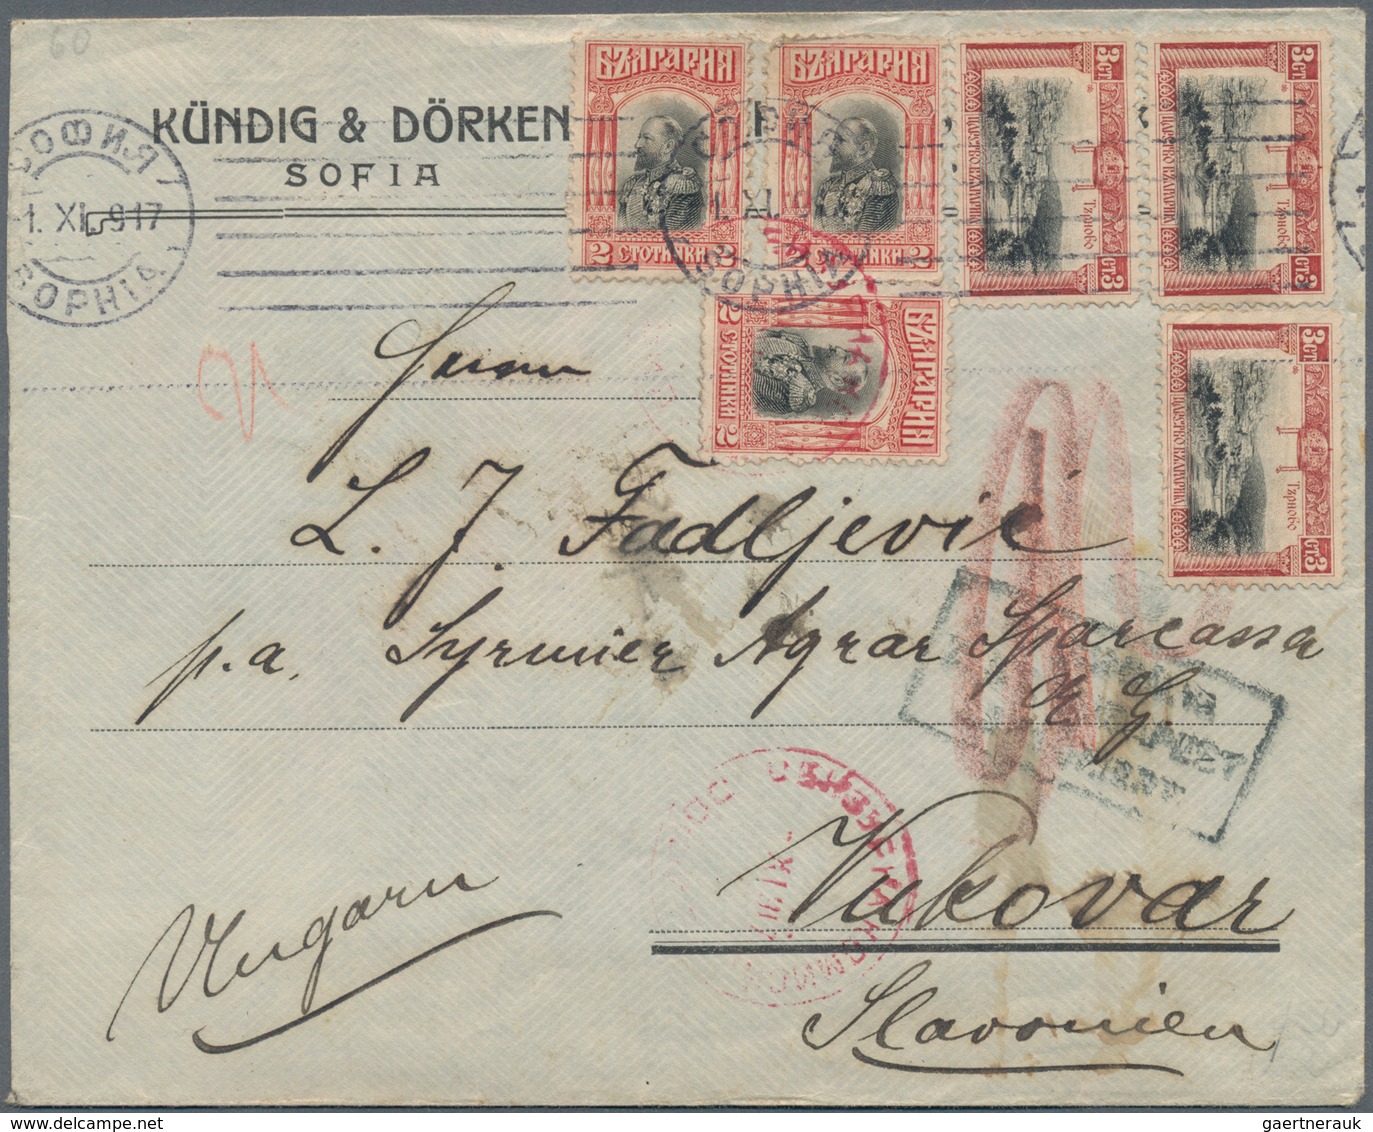 60
KÜNDIG & DÖRKEN
SOFIA
СОФИЯ
1. XI. 917
SOPHIA
БЪЛГАРИЯ
2 СТОТИНКИ 2
БЪЛГАРИЯ
2 СТОТИНКИ 2
1. XI. 9
SOPHIA
3 СТ
ЦАРСТВО БЪЛГАРИЯ
Търново
СТ 3
3 СТ
ЦАРСТВО БЪЛГАРИЯ
Търново
СТ 3
БЪЛГАРИЯ
2 СТОТИНКИ 2
3 СТ
ЦАРСТВО БЪЛГАРИЯ
Търново
СТ 3
Herrn
L. J. Fadljević
p.a. Syrmier Agrar Sparcassa
A. G.
Vukovar
Ungarn
Slavonien
gaertnerauk